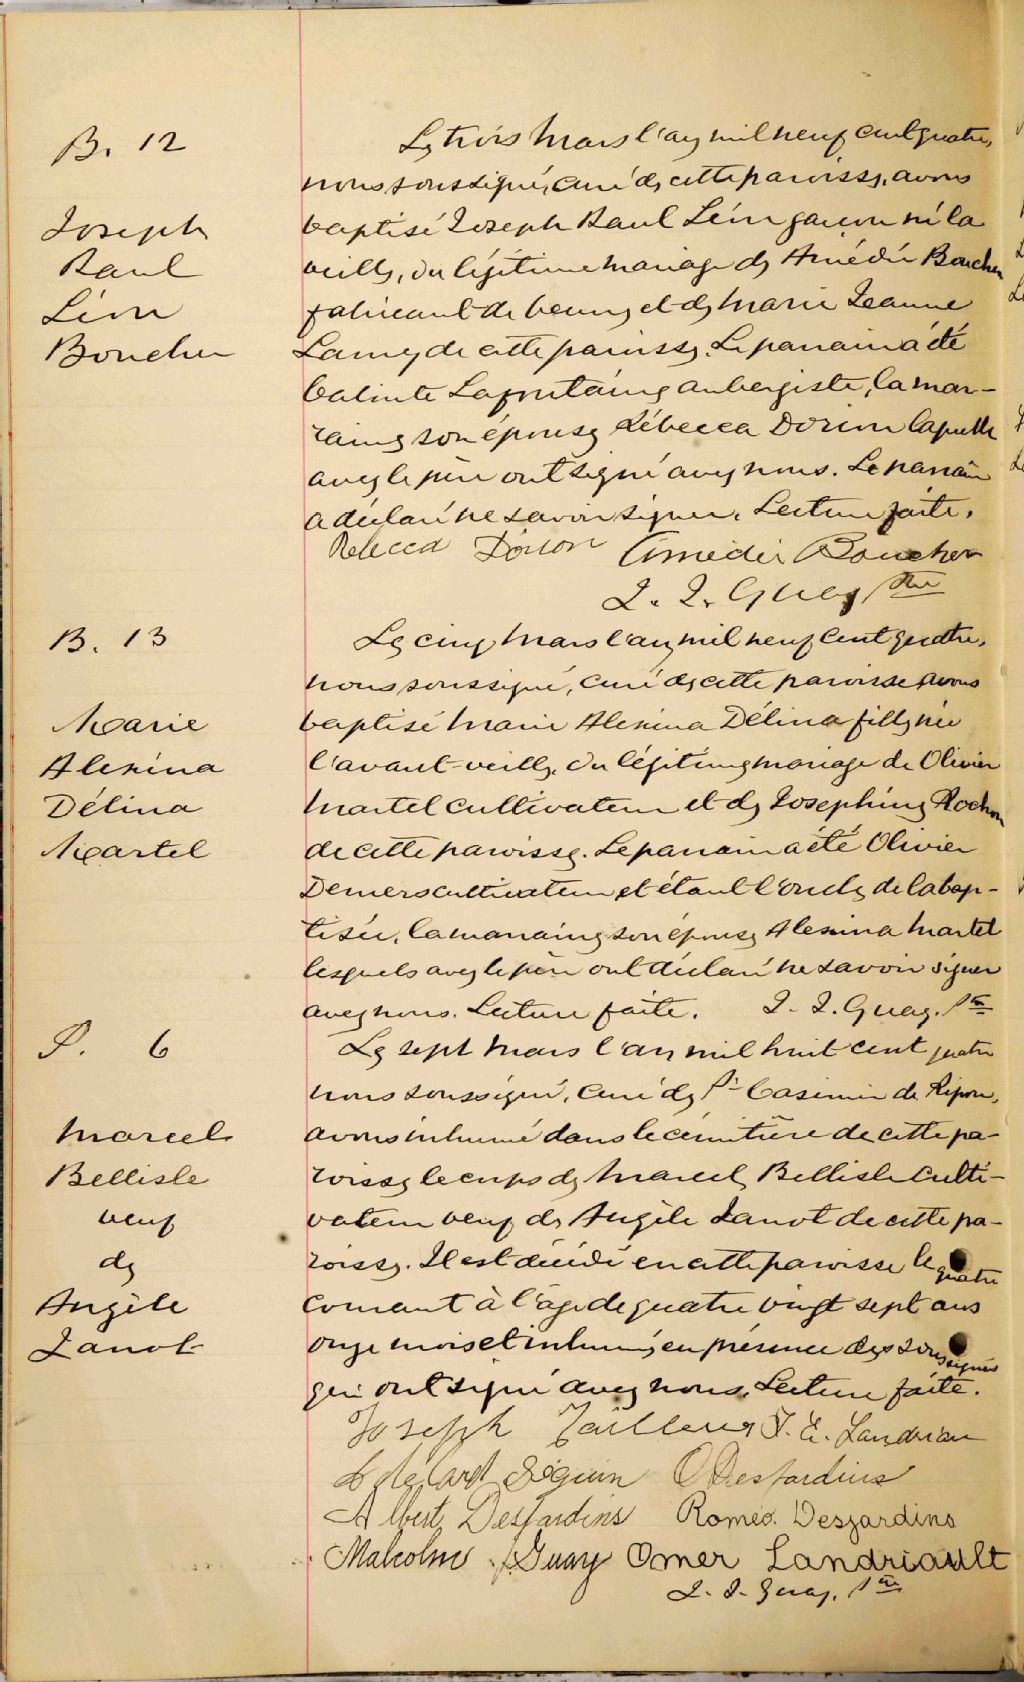 B. 12
Joseph
Raul
Léon
Boucher
Le trois Mars l'an mil neuf cent quatre,
nous soussigné, curé de cette paroisse, avons
baptisé Joseph Raul Léon garçon né la
veille, du légitime mariage de Amédée Boucher
fabricant de beurre et de Marie Jeanne
de cette paroisse. Le parrain a été
Lafontaine aubergiste, la mar-
raine son épouse Rébecca Dorion laquelle
avec le père ont signé avec nous. Le parrain
a déclaré ne savoir signer. Lecture faite.
Rebecca Dorion Amédée Boucher
J. J. Guay Ptre
B. 13
Marie
Alexina
Délina
Martel
Le cinq Mars l'an mil neuf cent quatre,
nous soussigné, curé de cette paroisse avons
baptisé Marie Alexina Délina fille née
l'avant-veille, du légitime mariage de Olivier
Martel cultivateur et de Josephine Rochon
de cette paroisse. Le parrain a été Olivier
Demers cultivateur et étant l'oncle de la bap-
tisée, la marraine son épouse Alexina Martel
lesquels avec le père ont déclaré ne savoir signer
avec nous. Lecture faite. J. J. Guay. Ptre
S. 6
Marcel
Bellisle
veuf
de
Angèle
Janot
Le sept Mars l'an mil huit cent quatre
nous soussigné, curé de St Casimir de Ripon,
avons inhumé dans le cimitière de cette pa-
roisse le corps de Marcel Bellisle culti-
vateur veuf de Angèle Janot de cette pa-
roisse. Il est décédé en cette paroisse le quatre
courant à l'âge de quatre vingt sept ans
onze mois et inhumé en présence des soussignés
qui ont signé avec nous. Lecture faite.
Joseph Tailleur J. E. Landriau
Séguin O Desjardins
Albert Desjardins Roméo. Desjardins
Malcolm Guay Omer Landriault
J. J. Guay, Ptre